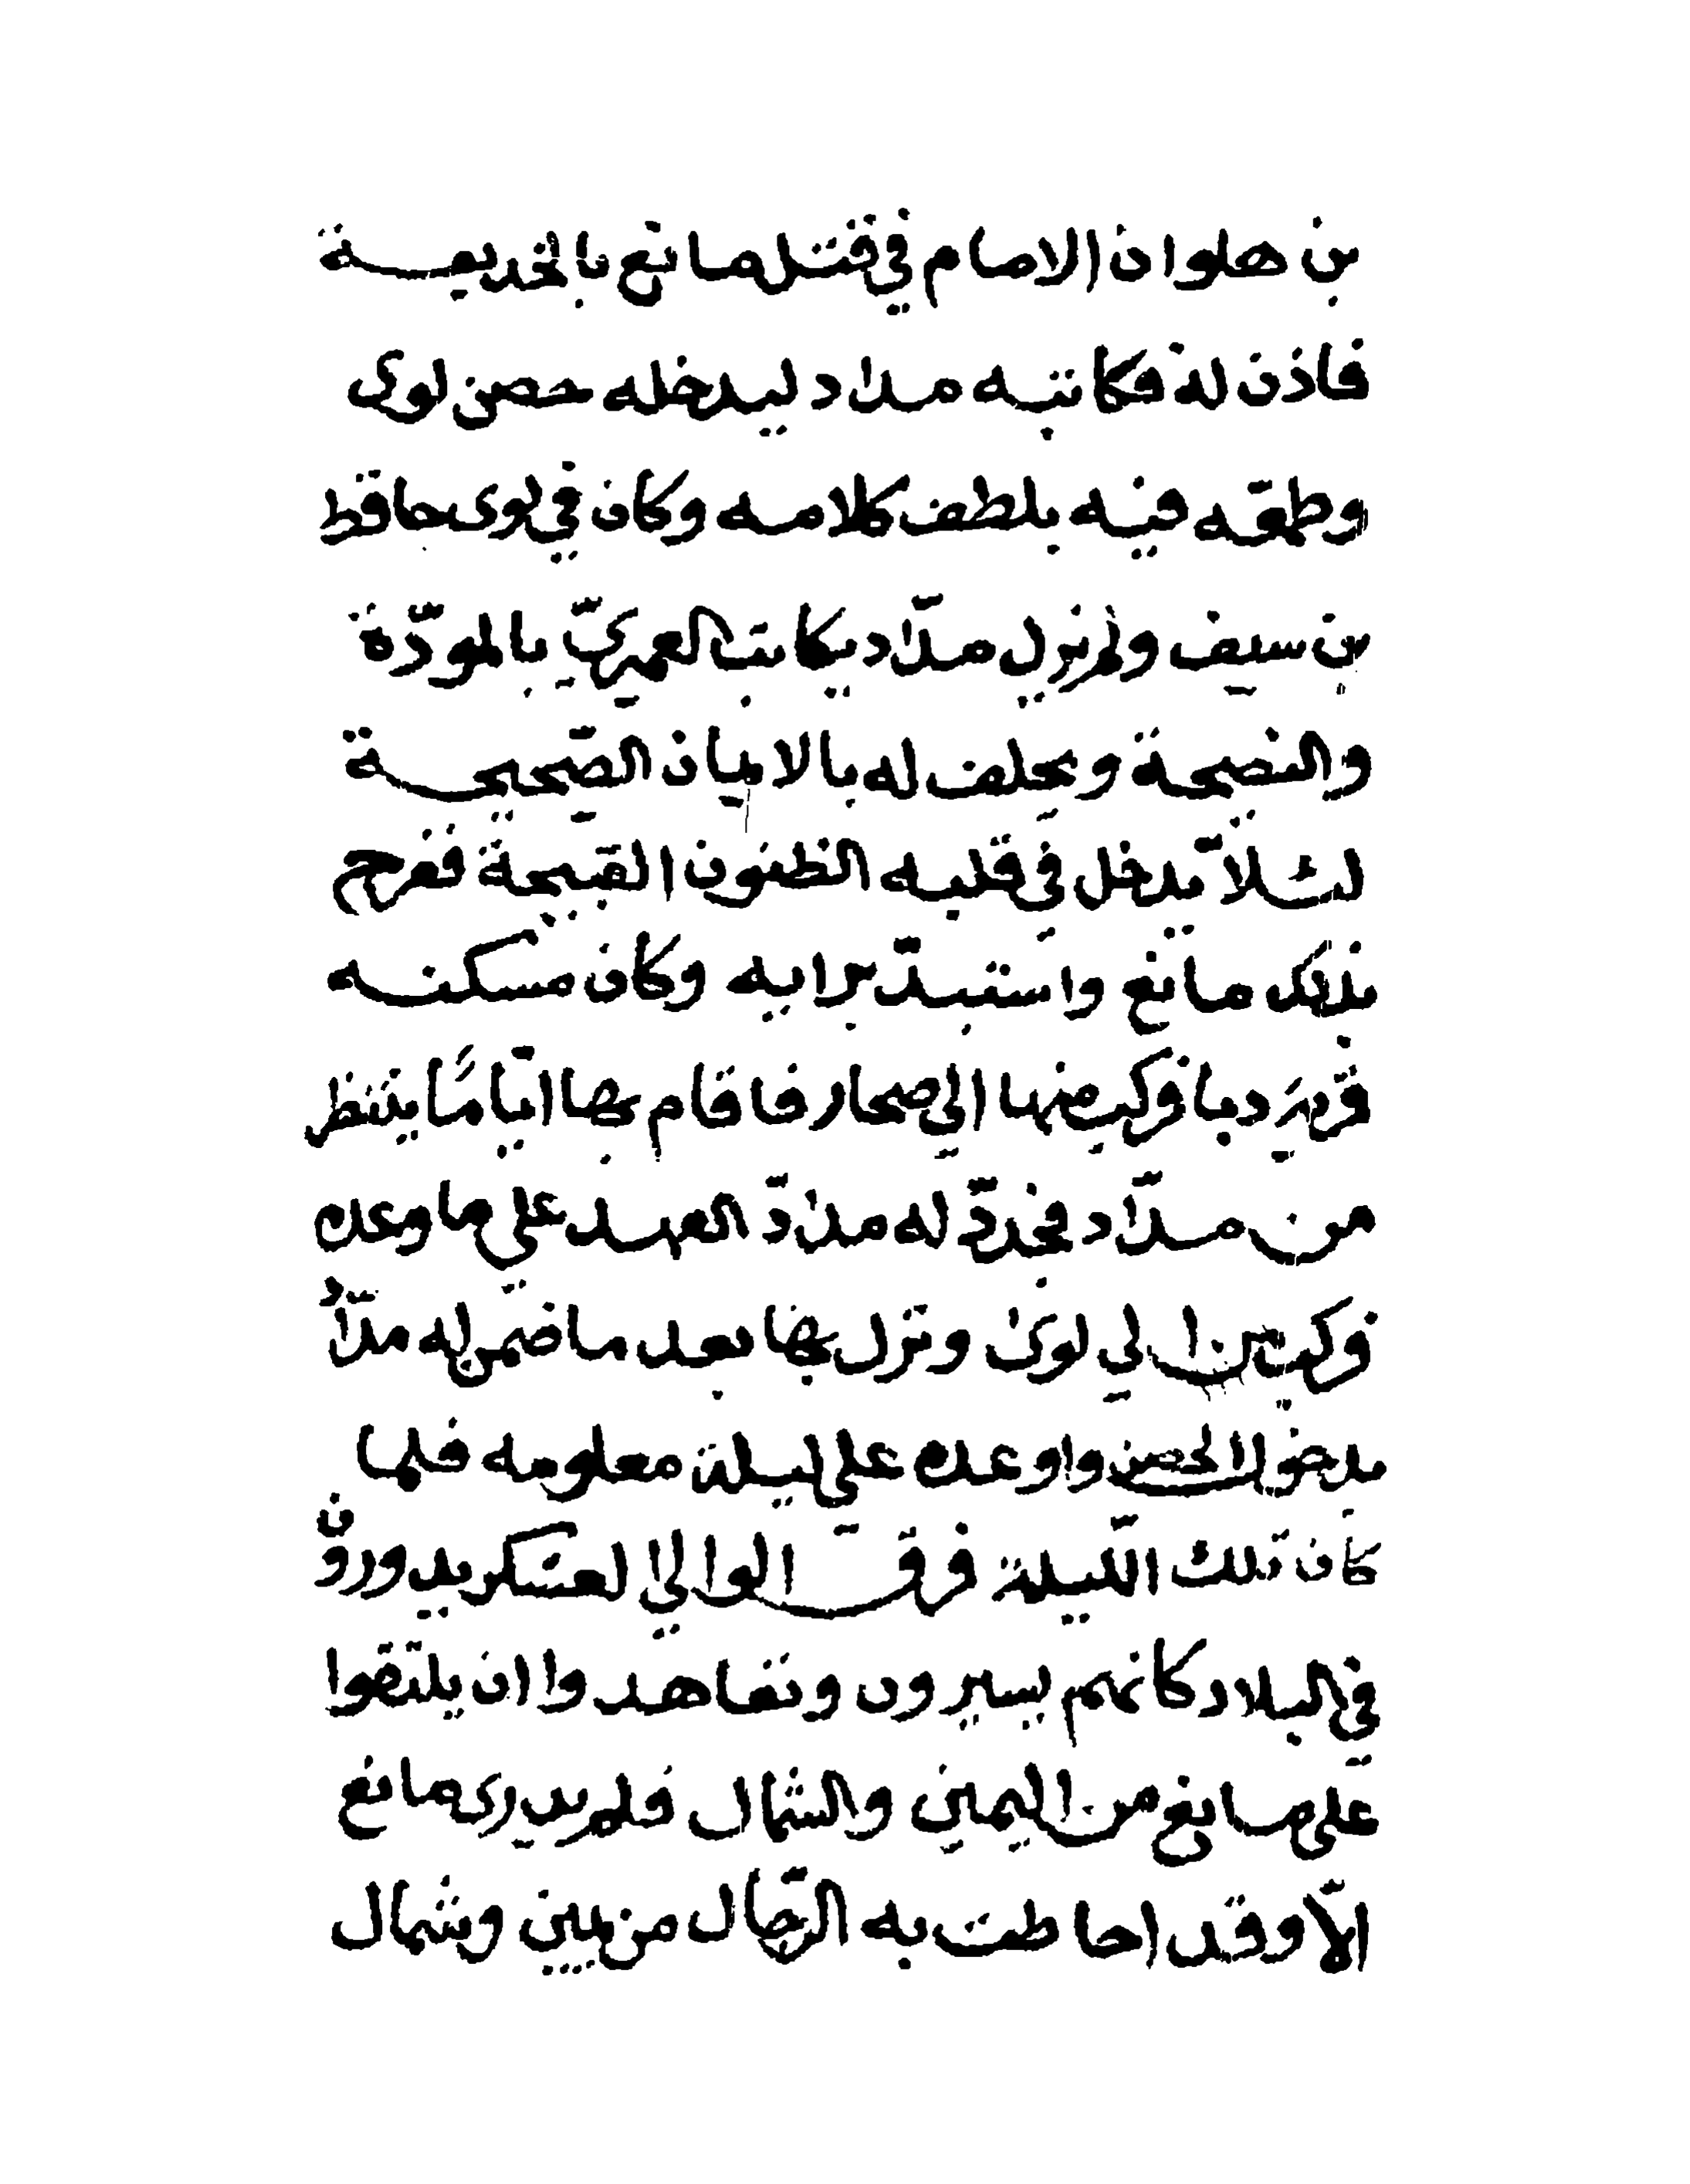 بن هلوان الامام في قتل مانع بالخديعة
فاذن له فكاتبه مداد ليدخله حصن لوى
وطمّعه فيه بلطف كلامه وكان في لوى حافظ
بن سيف ولم يزل مدّاد يكاتب العميريّ بالمودّة
والنصيحة ويحلف له بالايمان الصّحيحة
لئلاّ تدخل في قلبه الظنون القبيحة ففرح
بذلك مانع واستبدّ برايه وكان مسكنه
قرية دبا فركب منها الى صحار فاقام بها ايّامًا ينتظر
من مدّاد فجدّد له مداد العهد على ما وعده
فركب الى لوى ونزل بها بعد ما ضمن له مدّادُ
بدخول الحصن واوعده على ليلة معلومه فلما
كان تلك اللّيلة فرق الوالي العسكر يدورون
في البلاد كانهم يسيرون وتعاهدوا ان يلتقوا
على مانع من اليمين والشمال فلم يدرى مانع
الاّ وقد احاطت به الرّجال من يمين وشمال